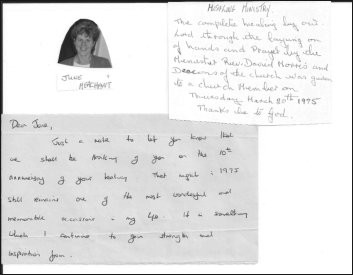 JUNE
MERCHANT
HEALING MINISTRY.
The complete healing by our
Lord through the laying on
of hands and Prayer by the
Minister Rev David Morris and
Deacons of the church was given
to a church Member on
Thursday March 20th 1975
Thanks be to God.
Dear June,
Just a note to let you know that
we shall be thinking of you on the 10th
anniversary of your healing. That night in 1975
still remains one of the most wonderful and
memorable occasions in my life. It is something
which I continue to gain strength and
inspiration from.